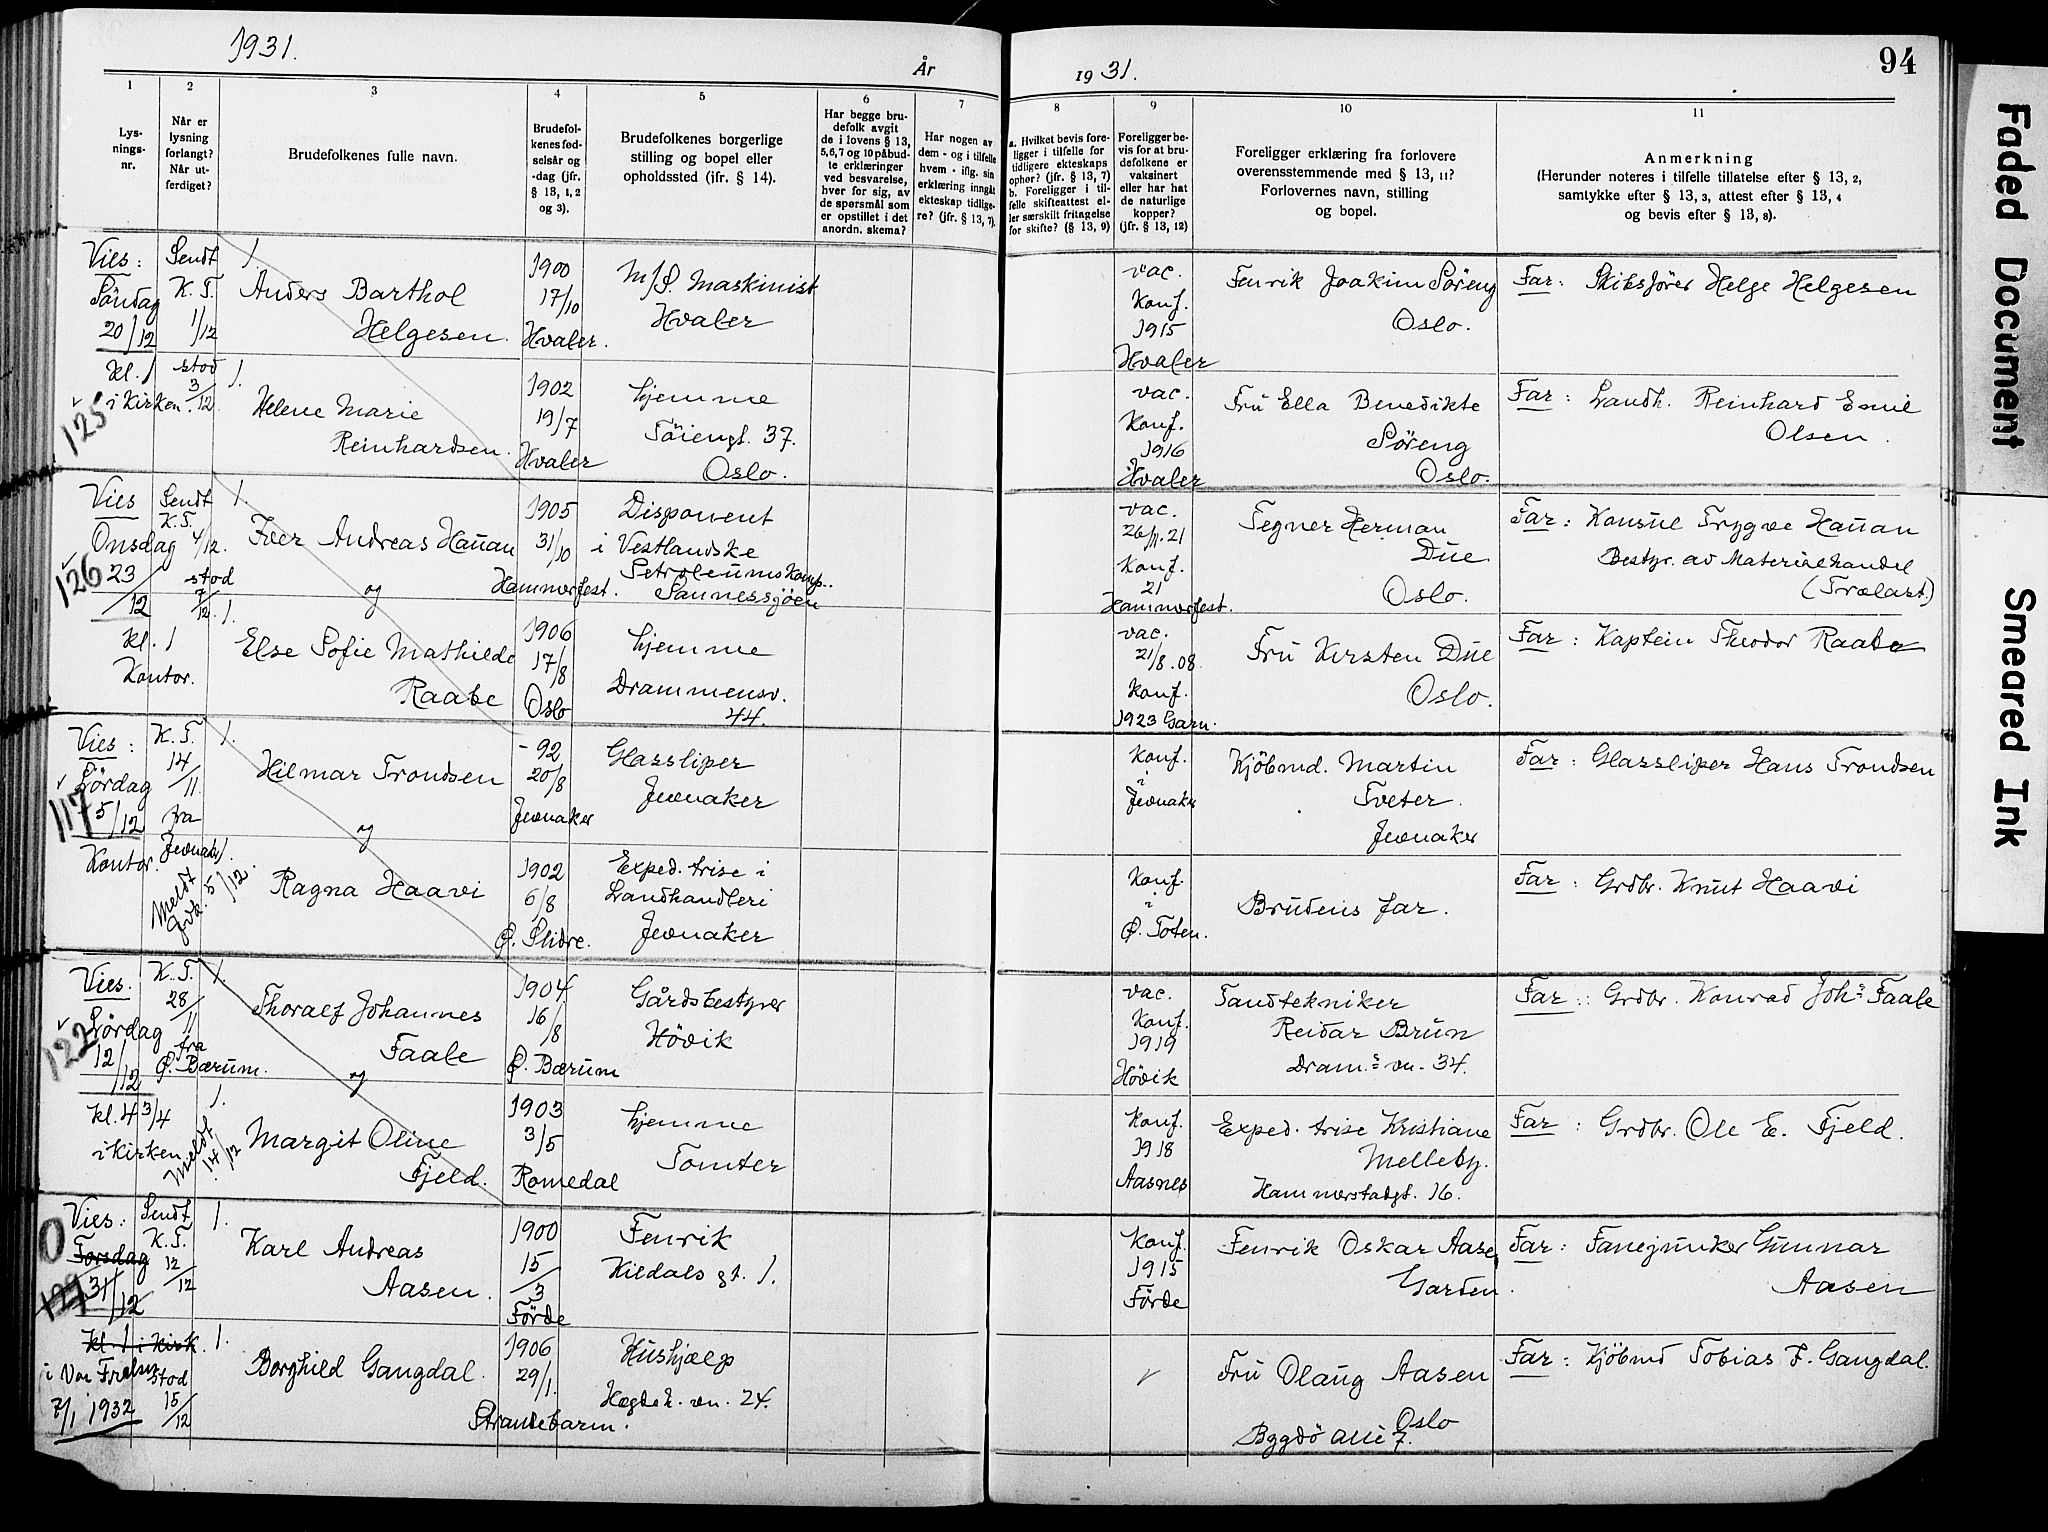 1931.
År
1931.
94
1
2
3
4
5
6
7
8
9
10
11
Lys-
nings-
nr.
Når er
lysning
forlangt?
Når ut-
ferdiget?
Brudefolkenes fulle navn.
Brudefol-
kenes fød-
selsår og
-dag (jfr.
§ 13, 1, 2
og 3).
Brudefolkenes borgerlige
stilling og bopel eller
opholdssted (ifr. § 14).
Har begge bru-
defolk avgit
de i lovens § 13,
5,6,7 og 10 påbud-
te erklæringer
ved besvarelse,
hver for sig, av
de spørsmål som
er opstillet i det
anordn. skema?
Har nogen av
dem - og i tilfelle
hvem - iflg. sin
erklæring inngått
ekteskap tidlige-
re? (jfr. § 13, 7).
a. Hvilket bevis fore-
ligger i tilfelle for
tidligere ekteskaps
ophør? (jfr. § 13, 7)
b. Foreligger i til-
felle skifteattest el-
ler særskilt fritagelse
for skifte? (§ 13, 9)
Foreligger be-
vis for at bru-
defolkene er
vaksinert
eller har hat
de naturlige
kopper?
(jfr. § 13, 12)
Foreligger erklæring fra forlovere
overensstemmende med § 13, 11?
Forlovernes navn, stilling
og bopel.
Anmerkning
(Herunder noteres i tilfelle tillatelse efter § 13, 2,
samtykke efter § 13, 3, attest efter § 13, 4
og bevis efter § 13, 8).
125
Vies:
Söndag
20/12
kl. 1
i Kirken.
Sendt
K.T.
1/12
stod
3/12
1.
Anders Barthol
Helgesen.
1900
17/10
Hvaler.
M/S. Maskinist
Hvaler
vac.
Konf.
1915
Hvaler
Fenrik Joakim Söreng
Oslo.
Far: Skibsfører Helge Helgesen
1.
Helene Marie
Reinhardsen.
1902
19/7
Hvaler
hjemme
Töiengt. 37.
Oslo.
vac.
Konf.
1916
Hvaler
Fru Ella Benedikte
Söreng
Oslo.
Far: Landh. Reinhard Emil
Olsen.
126
Vies
Onsdag
23/12
kl. 1
Kontor.
Sendt
K.T.
4/12.
stod
7/12.
1.
Iver Andreas Hauan
og
1905
31/10
Hammerfest.
Disponent
i Vestlandske
Petroleumskomp..
Sannessjöen
vac.
26/11.21
Konf.
21
Hammerfest.
Tegner Herman
Due
Oslo.
Far: Konsul Trygve Hauan
Bestyr. av Materialhandel
(Trælast)
1.
Else Sofie Mathilde
Raabe
1906
17/8
Oslo
hjemme
Drammensv.
44.
vac.
21/8.08.
Konf.
1923 Garn.
Fru Kirsten Due
Oslo.
Far: Kaptein Theodor Raabe
117
Vies:
Lördag
5/12
Kontor.
K.T.
14/11.
fra
Jevnaker
Meldt
5/12.
1.
Hilmar Trondsen
og
- 92
20/8
Jevnaker
Glassliper
Jevnaker
Konf.
i
Jevnaker
Kjöbmd. Martin
Tveter.
Jevnaker
Far: Glassliper Hans Trondsen
1.
Ragna Haavi
1902
6/8
Ø. Slidre.
Exped. trise i
Landhandleri
Jevnaker
Konf.
i
Ø. Toten.
Brudens far.
Far: Grdbr. Knut Haavi
122
Vies.
Lördag
12/12
kl. 4 3/4
i Kirken.
K.T.
28/11
fra
Ø. Bærum.
Meldt
14/12
1.
Thoralf Johannes
Faale
og
1904.
16/8
Ø. Bærum
Gårdsbestyrer
Hövik
vac.
Konf.
1919
Hövik
Tandtekniker
Reidar Brun
Dram.s vn. 34.
Far: Grdbr. Konrad Johs Faale
1.
Margit Oline
Fjeld.
1903
3/5
Romedal
hjemme
Tomter
Konf.
1918
Aasnes
Exped. trise Kristiane
Melleby.
Hammerstadgt. 16.
Far: Grdbr. Ole E. Fjeld.
0
129
Vies:
Torsdag
31/12
kl. 1 i Kirk.
i Vor Frelser
7/1 1932
Sendt
K.T.
12/12
stod
15/12
1.
Karl Andreas
Aasen.
1900
15/3
Förde
Fenrik
Kildals gt. 1.
Konf.
1915
Förde
Fenrik Oskar Aase
Garden.
Far: Fanejunker Gunnar
Aasen
1.
Borghild Gangdal.
1906
29/1.
Strandebarm.
Hushjælp
Hegdeh. vn. 24.
Fru Olaug Aasen
Oslo
Bygdö Allé 7.
Far: Kjöbmd Tobias F. Gangdal.
Faded Document
Smeared Ink